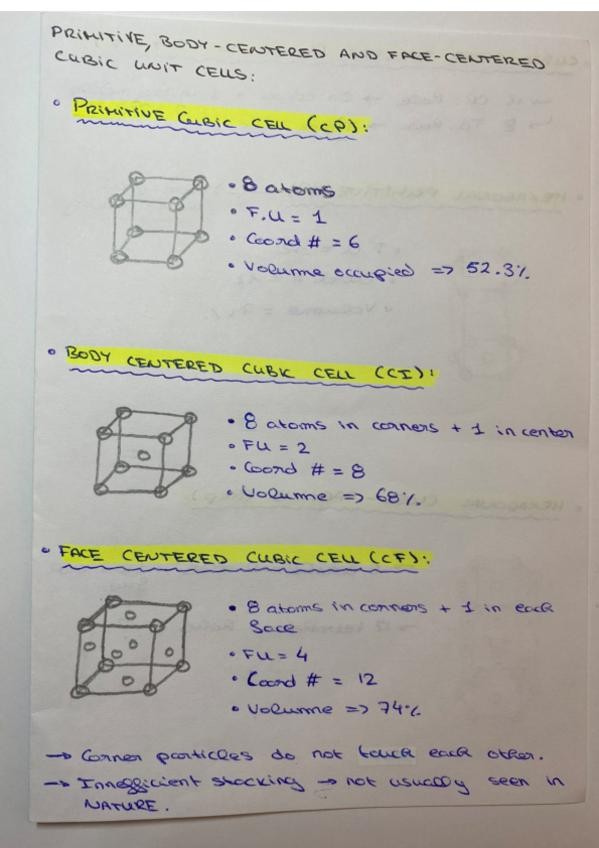 PRIMITIVE, BODY-CENTERED AND FACE-CENTERED
CUBIC UNIT CELLS:
• PRIMITIVE CUBIC CELL (CP):
• 8 atoms
• F.U = 1
• Coord # = 6
• Volume occupied => 52.3%
• BODY CENTERED CUBIC CELL (CI):
• 8 atoms in corners + 1 in center
• FU = 2
• Coord # = 8
• Volume => 68%
• FACE CENTERED CUBIC CELL (CF):
• 8 atoms in corners + 1 in each
face
• FU = 4
• Coord # = 12
• Volume => 74%
→ Corner particles do not touch each other.
→ Innefficient stacking → not usually seen in
NATURE.